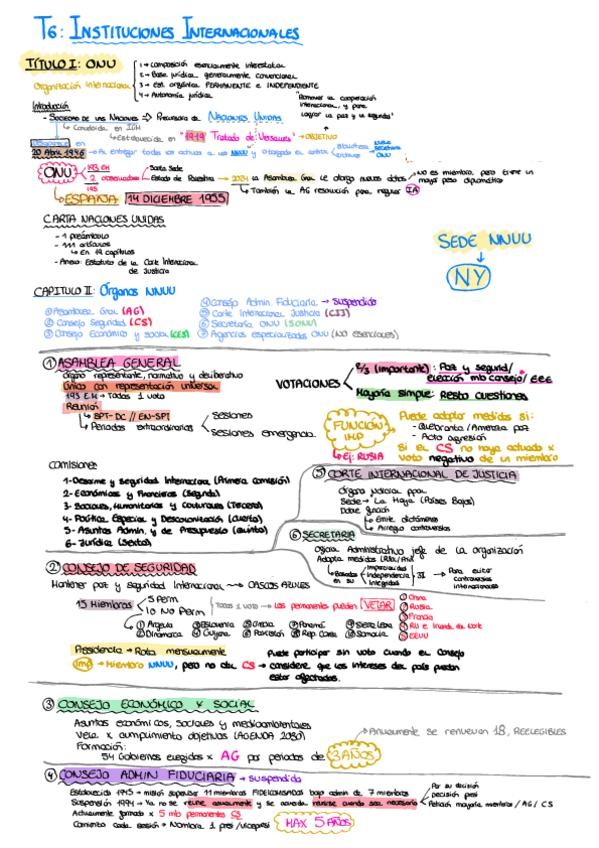 T6: INSTITUCIONES INTERNACIONALES
TÍTULO I: ONU
Organización Internacional
1→ Composición esencialmente interestatal
2→ Base jurídica generalmente convencional
3→ Est. orgánica PERMANENTE E INDEPENDIENTE
4→ Autonomía jurídica
Introducción
- Sociedad de las Naciones => Precursora de NACIONES UNIDAS
"Promover la cooperación internacional, y para lograr la paz y la seguridad"
↳ Concebida en IGM
↳ Establecida en "1919 Tratado de Versalles" → OBJETIVO
en
20 Abril 1946 → Al entregar todos los activos a las NNUU y otorgado el control
ONU
193 EM
2 observadores
Santa Sede
Estado de Palestina → 2024 la Asamblea Gral le otorgó nuevos dchos
No es miembro, pero tiene un mayor peso diplomático
195
↳ También la AG resolución para regular IA
↳ ESPAÑA 14 DICIEMBRE 1955
CARTA NACIONES UNIDAS
- 1 preámbulo
- 111 artículos
↳ En 19 capítulos
- Anexo: Estatuto de la Corte Internacional de Justicia
SEDE NNUU
↓
NY
CAPITULO II: Órganos NNUU
① Asamblea Gral (AG)
② Consejo Seguridad (CS)
③ Consejo Económico y social (CES)
④ Consejo Admin. Fiduciaria → Suspendido
⑤ Corte Internacional Justicia (CIJ)
⑥ Secretaría ONU (SONU)
⑦ Agencias especializadas ONU (NO esenciales)
① ASAMBLEA GENERAL
Órgano representante, normativo y deliberativo
Único con representación universal
193 E.M → Todos 1 voto
Reunión
↳ SPT-DC // EN-SPT
↳ Periodos extraordinarios
Sesiones
Sesiones emergencia.
VOTACIONES
2/3 (importante): Paz y segurid/ elección mb consejo/ EEE
Mayoría simple: Resto cuestiones
FUNCIÓN IMP
↳ Ej: RUSIA
Puede adoptar medidas si:
- Quebranta/Amenaza paz
- Acto agresión
Si el CS no haya actuado x voto negativo de un miembro
COMISIONES
1- Desarme y seguridad Internacional (Primera Comisión)
2- Económicas y Financieras (Segunda)
3- Sociales, Humanitarias y Culturales (Tercera)
4- Política Especial y Descolonización (Cuarta)
5- Asuntos Admin. y de Presupuesto (Quinta)
6- Jurídica (Sexta)
⑤ CORTE INTERNACIONAL DE JUSTICIA
Órgano judicial ppal
Sede → La Haya (Países Bajos)
Doble función
↳ Emite dictámenes
↳ Arreglo controversias
⑥ SECRETARIA
Oficial Administrativo jefe de la organización
↳ Basadas en su
Imparcialidad
Independencia
Integridad
→ Para evitar controversias internacionales
② CONSEJO DE SEGURIDAD
Mantener paz y seguridad Internacional → CASCOS AZULES
15 Miembros
5 Perm
10 No Perm
Todos 1 voto → Los permanentes pueden VETAR
① China
② Rusia
③ Francia
④ RU e Irlanda del Norte
⑤ EEUU
① Argelia
② Dinamarca
③ Eslovenia
④ Guyana
⑤ Grecia
⑥ Pakistán
⑦ Panamá
⑧ Rep. Corea
⑨ Sierra Leona
⑩ Somalia
Presidencia → Rota mensualmente
IMP → Miembro NNUU, pero no del CS
Puede participar sin voto cuando el Consejo considere que los intereses del país puedan estar afectados.
③ CONSEJO ECONÓMICO Y SOCIAL
Asuntos económicos, sociales y medioambientales
Vela x cumplimiento objetivos (AGENDA 2030)
Formación:
54 Gobiernos elegidos x AG por periodos de 3 AÑOS
→ Anualmente se renuevan 18, REELEGIBLES
④ CONSEJO ADMIN FIDUCIARIA → Suspendida
Establecida 1945 → misión supervisar 11 miembros FIDEICOMISADOS bajo admin de 7 miembros
Suspensión 1994 → Ya no se reúne anualmente y se acuerda reunirse cuando sea necesario
Por su decisión
decisión presi
Petición mayoría miembros / AG / CS
Actualmente formado x 5 mb permanentes CS
Comienzo cada sesión → Nombra 1 presi/vicepresi
MAX 5 AÑOS